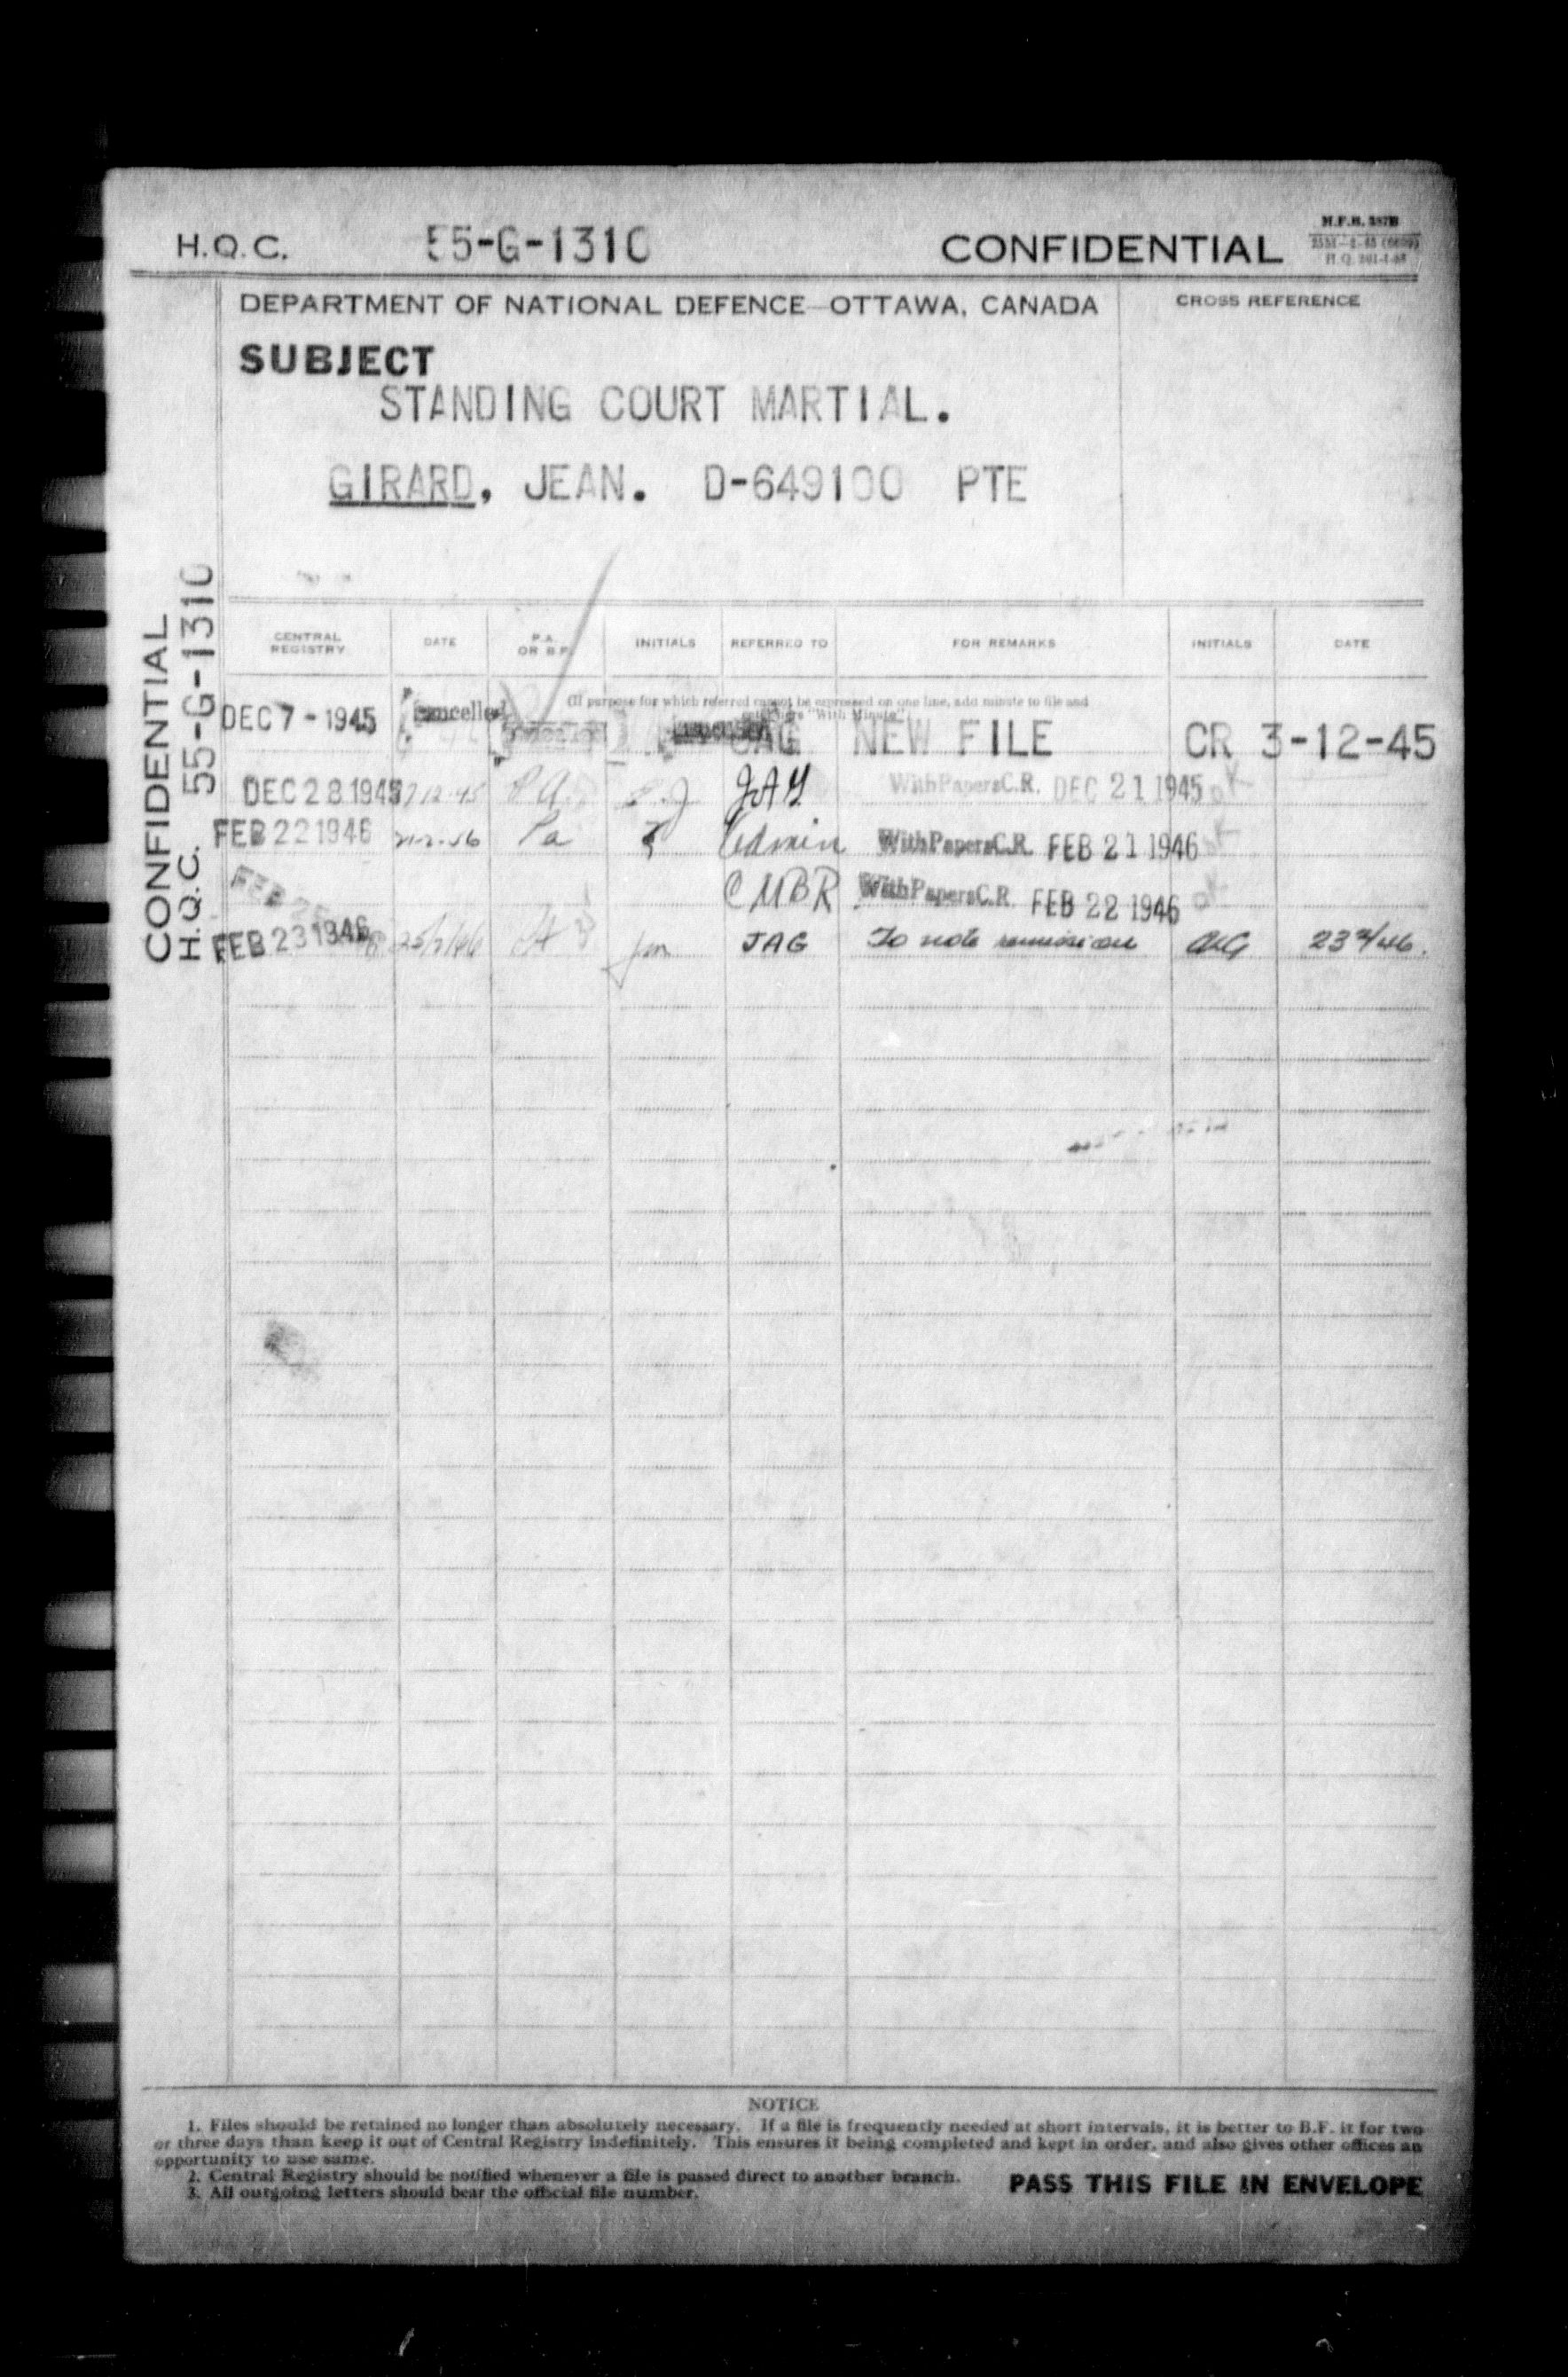 H.Q.C. 55-G-1310 CONFIDENTIAL M.F.B. 387B
DEPARTMENT OF NATIONAL DEFENCE—OTTAWA, CANADA CROSS REFERENCE
SUBJECT
STANDING COURT MARTIAL.
GIRARD, JEAN. D-649100 PTE
CONFIDENTIAL
H.Q.C. 55-G-1310
CENTRAL REGISTRY DATE P.A. OR B.F. INITIALS REFERRED TO FOR REMARKS INITIALS DATE
(If purpose for which referred cannot be expressed on one line, add minute to file and
"With Minute")
DEC 7 - 1945 Cancelled JAG NEW FILE CR 3-12-45
DEC 28 1945 PA JAG With Papers C.R. DEC 21 1945 OK
FEB 22 1946 Pa Admin With Papers C.R. FEB 21 1946 OK
CMBR With Papers C.R. FEB 22 1946 OK
FEB 23 1946 25/2/46 JAG To note remission 23 2/46.
NOTICE
1. Files should be retained no longer than absolutely necessary. If a file is frequently needed at short intervals, it is better to B.F. it for two
or three days than keep it out of Central Registry indefinitely. This ensures it being completed and kept in order, and also gives other offices an
opportunity to use same.
2. Central Registry should be notified whenever a file is passed direct to another branch.
3. All outgoing letters should bear the official file number.
PASS THIS FILE IN ENVELOPE